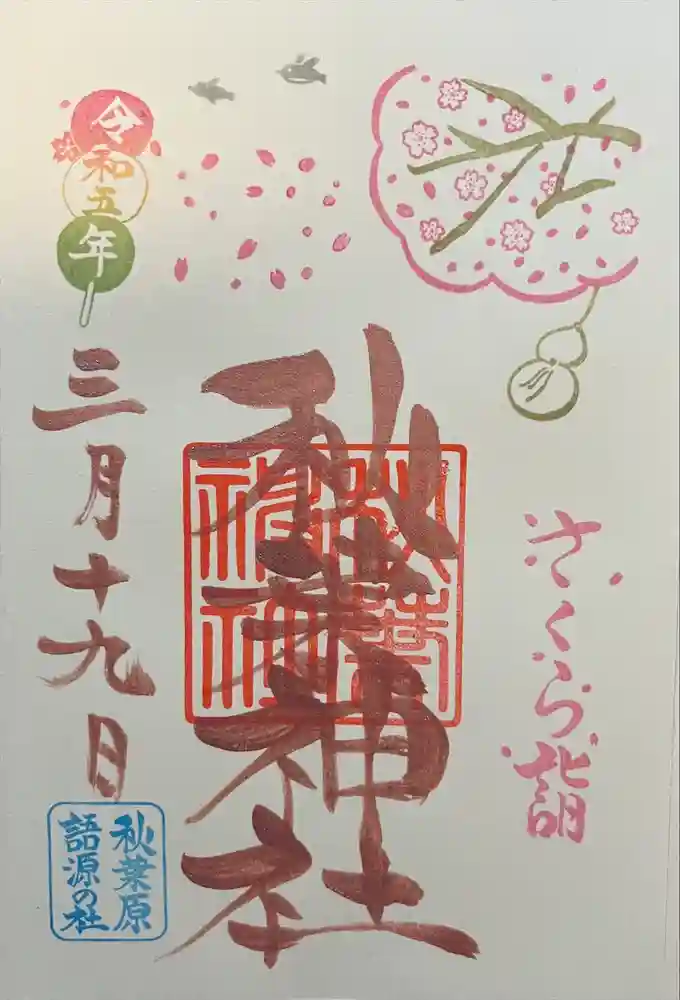 さくら詣
秋葉神社
秋葉
神社
令和五年
三月十九日
秋葉原
語源の社